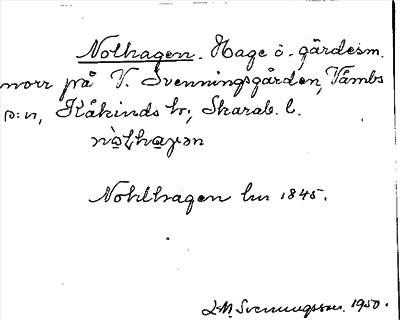 Nolhagen. Hage o. gärdesm.
norr på V. Svenningsgården, Våmbs
s:n, Kåkinds hd, Skarab. l.
Nohlhagen lm 1845.
L-M. Svenningsson. 1950.